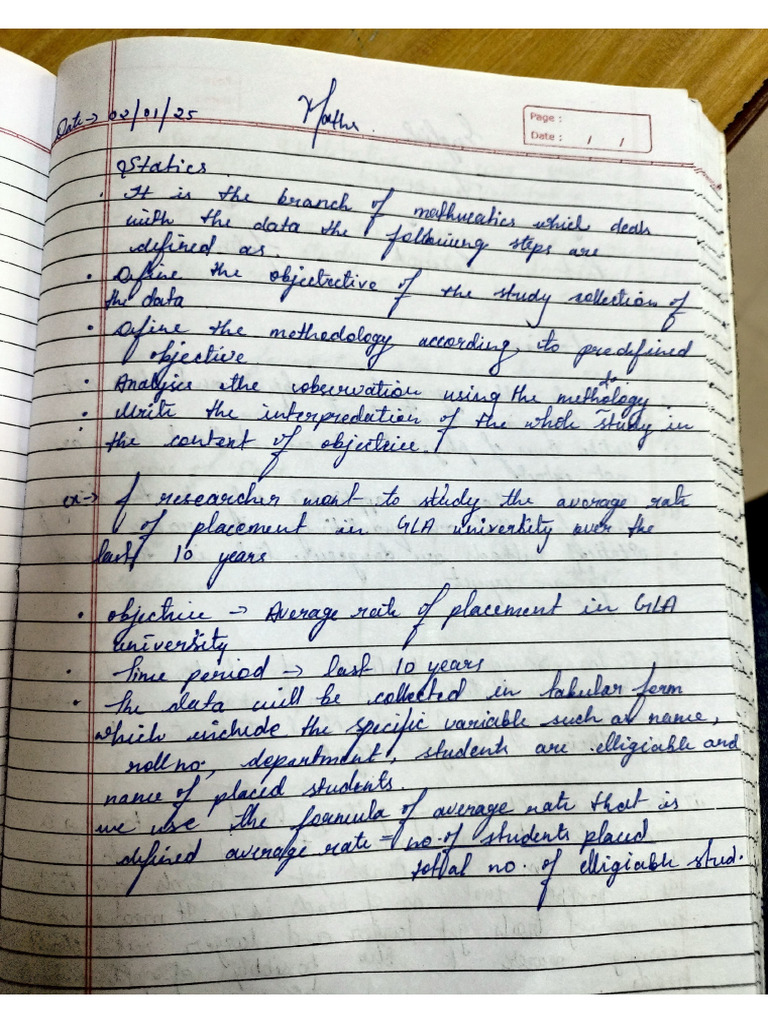 Date → 02/01/25
Maths.
Page :
Date : / /
Statics
. It is the branch of mathmeatics which deals
with the data the following steps are
defined as.
• Define the objectective of the study collection of
the data
• Define the methodology according to predefined
objective
• Analyise the observation using the methology
do
• Write the interpredation of the whole study in
the content of objective.
ex → A researcher want to study the average rate
of placement in GLA university over the
last 10 years
• objective → Average rate of placement in GLA
university
• Time period → last 10 years
• The data will be collected in tabular form
which include the specific variable such as name,
roll no., department, students are elligiable and
name of placed students.
we use the formula of average rate that is
defined average rate = no. of students placed
total no. of elligiable stud.